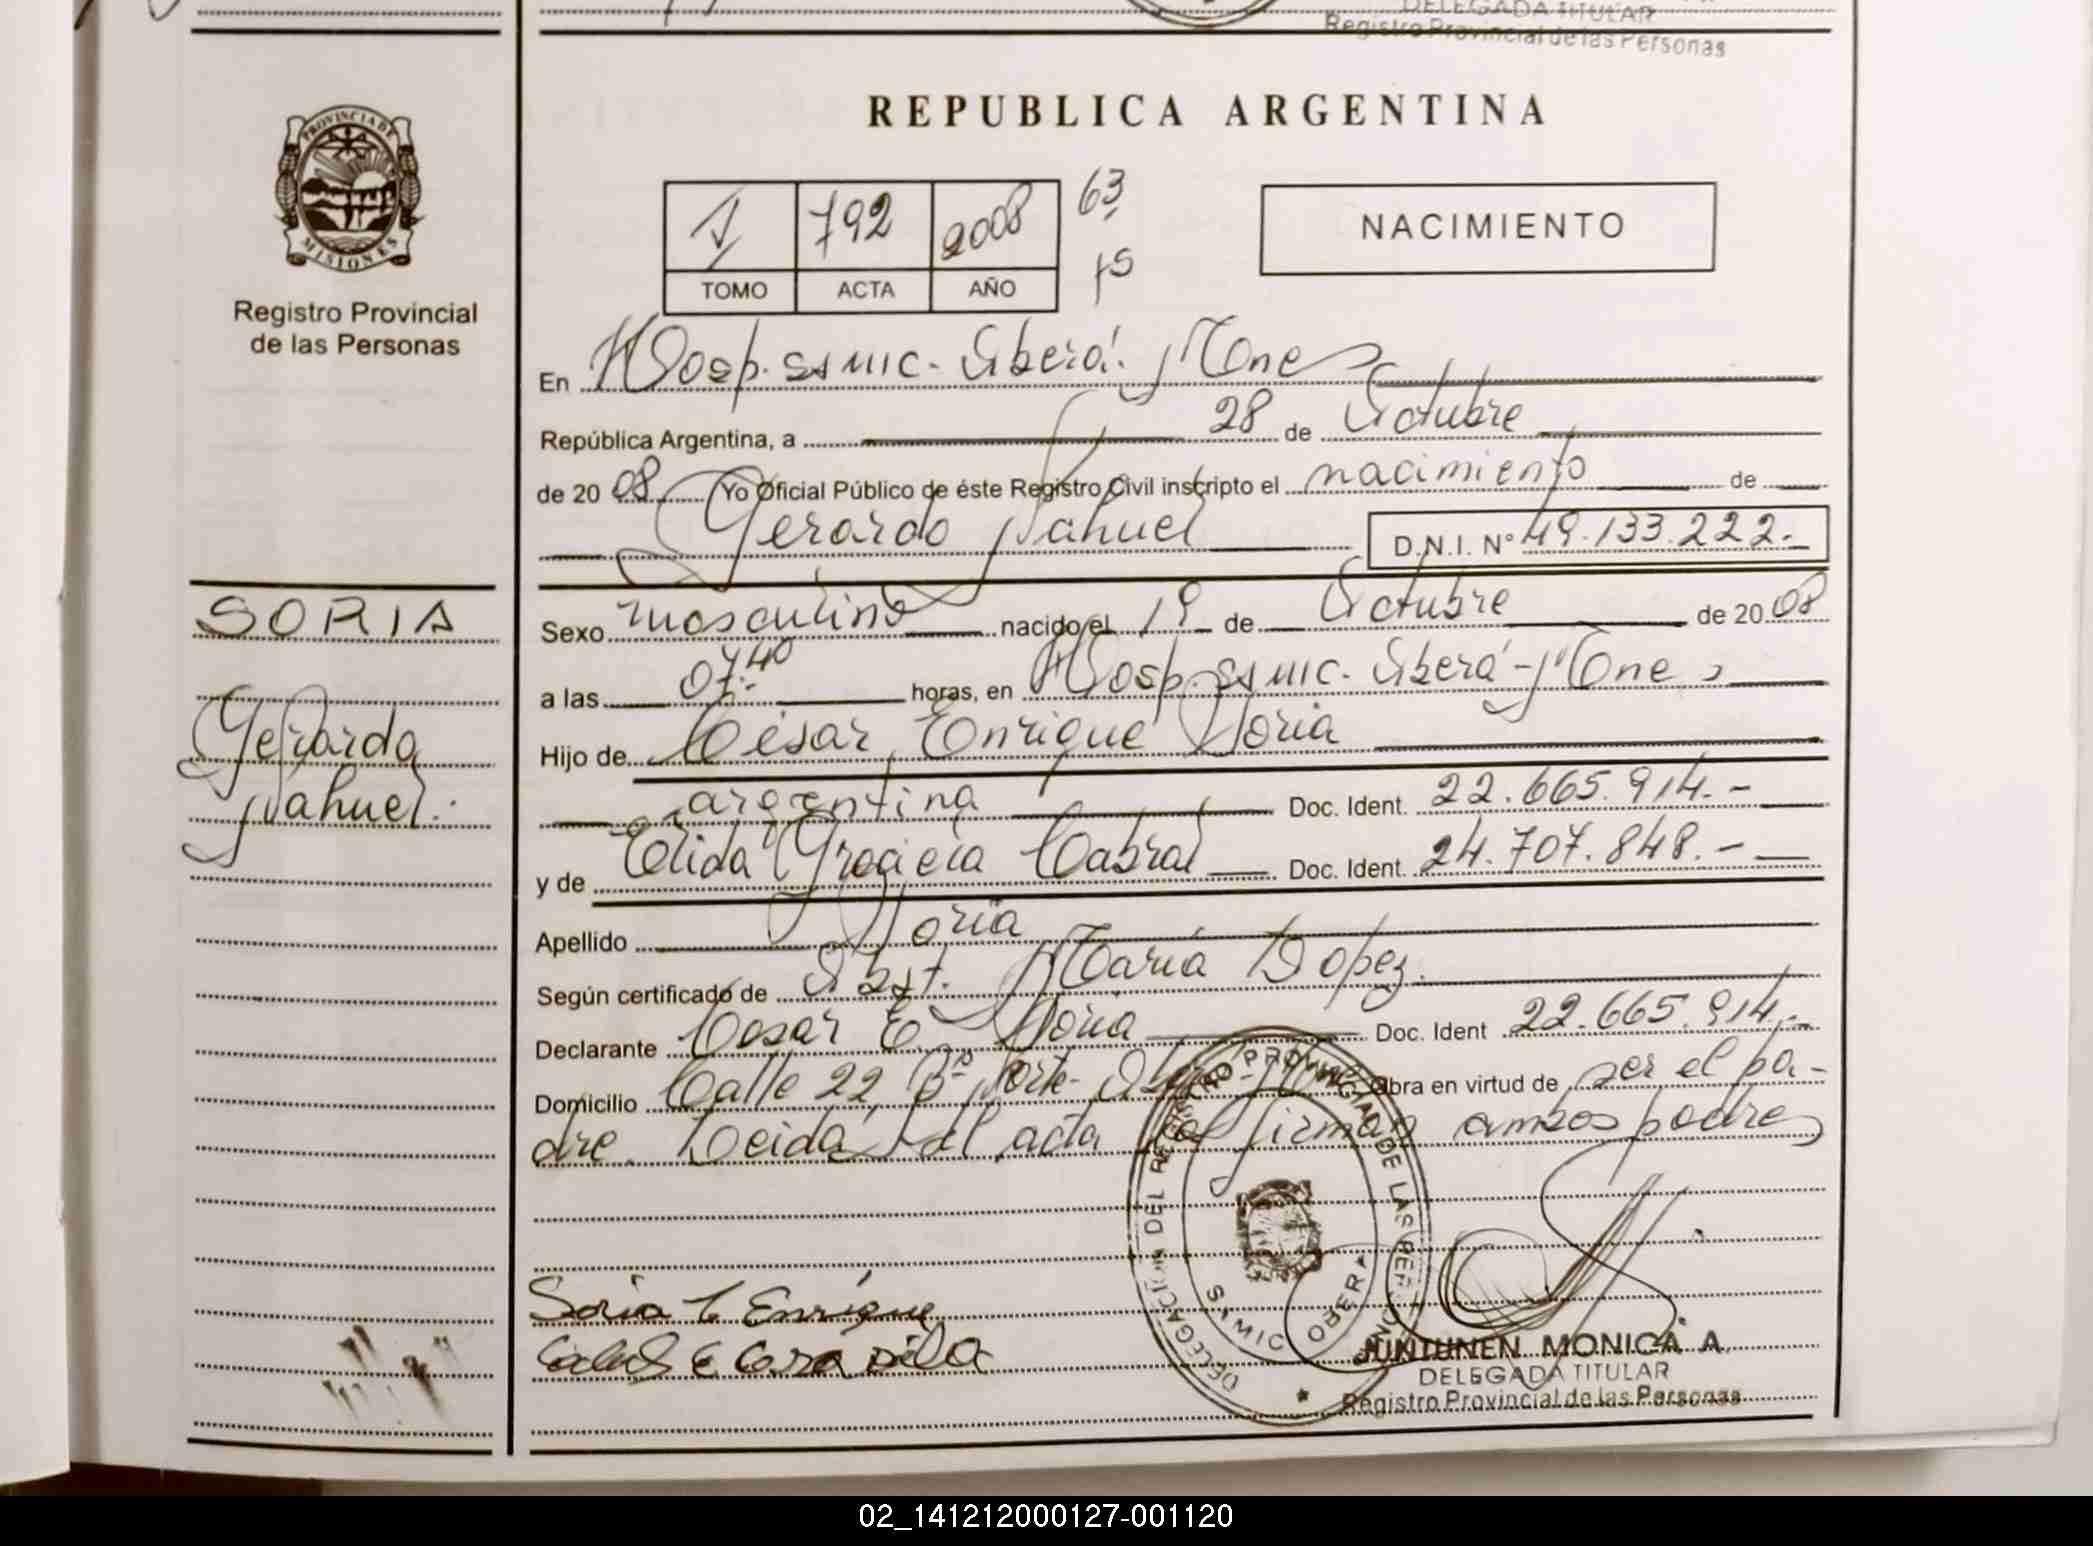 DELEGADA TITULAR
Registro Provincial de las Personas
PROVINCIA DE
MISIONES
Registro Provincial
de las Personas
REPUBLICA ARGENTINA
1 792 2008 63
TOMO ACTA AÑO
NACIMIENTO
En Hosp. SAMIC. Oberá. Mnes
República Argentina, a 28 de Octubre
de 20 08 Yo Oficial Público de éste Registro Civil inscripto el nacimiento de
Gerardo Nahuel D.N.I. N° 49.133.222.-
SORIA
Gerardo
Nahuel.
Sexo masculino nacido el de Octubre de 20 08
a las 07:40 horas, en Hosp. SAMIC. Oberá - Mnes
Hijo de César Enrique Soria
argentina Doc. Ident. 22.665.914.-
y de Elida Graciela Cabral Doc. Ident. 24.707.848.-
Apellido Soria
Según certificado de Obst. María Lopez.
Declarante Cesar E. Soria Doc. Ident 22.665.914.-
Domicilio Calle 22 B° Norte- Obra en virtud de ser el pa-
dre. Leída el acta la firman ambos padres
Soria C Enrique
DELEGACIÓN DEL REGISTRO PROVINCIAL DE LAS PERSONAS
OBERA
JUNTUNEN MONICA A.
DELEGADA TITULAR
Registro Provincial de las Personas
02_141212000127-001120